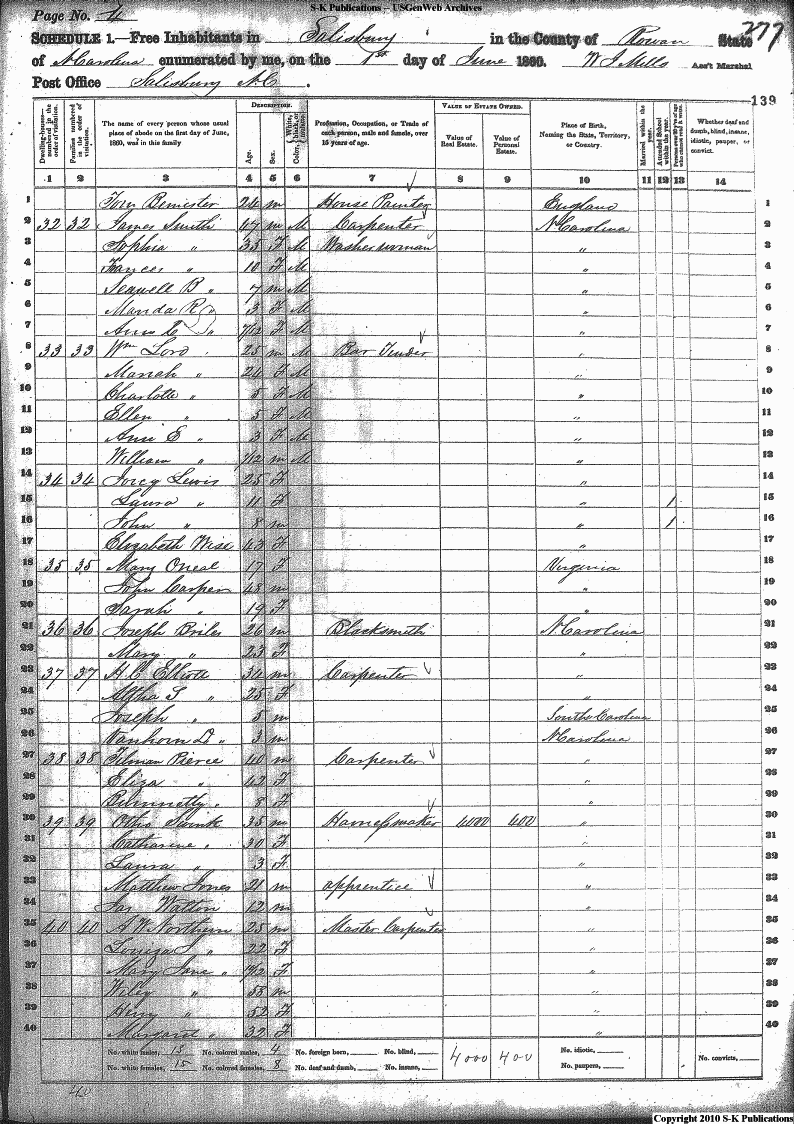 S-K Publications – USGenWeb Archives
Page No. 4
277
SCHEDULE 1.—Free Inhabitants in Salisbury in the County of Rowan State
of N Carolina enumerated by me, on the 1st day of June 1860. W J Mills Ass't Marshal
Post Office Salisbury N.C.
139
Dwelling-houses—numbered in the order of visitation.
Families numbered in the order of visitation.
The name of every person whose usual place of abode on the first day of June, 1860, was in this family
DESCRIPTION.
Age.
Sex.
Color,
Profession, Occupation, or Trade of each person, male and female, over 15 years of age.
VALUE OF ESTATE OWNED.
Value of Real Estate.
Value of Personal Estate.
Place of Birth, Naming the State, Territory, or Country.
Married within the year.
Attended School within the year.
Whether deaf and dumb, blind, insane, idiotic, pauper, or convict.
1 2 3 4 5 6 7 8 9 10 11 12 13 14
1 Bemister 24 m House Painter England 1
2 32 32 James Smith 47 m M Carpenter N Carolina 2
3 Sophia " 35 F M Washerwoman " 3
4 Frances " 10 F M " 4
5 B " 7 m M " 5
6 Manda R " 3 F M " 6
7 Ann E " 7/12 F M " 7
8 33 33 Wm Lord 25 m M Bar Tender " 8
9 Mariah " 24 F M " 9
10 Charlotte " 5 F M " 10
11 Ellen " 5 F M " 11
12 Ann E " 3 F M " 12
13 William " 7/12 m M " 13
14 34 34 Lewis 25 F " 14
15 Laura " 11 F " 1 15
16 John " 8 m " 1 16
17 Elizabeth Wise 43 F " 17
18 35 35 Mary Oneal 17 F Virginia 18
19 John Carper 48 m " 19
20 Sarah " 19 F " 20
21 36 36 Joseph Briles 26 m Blacksmith N Carolina 21
22 Mary " 23 F " 22
23 37 37 H C Elliott 34 m Carpenter " 23
24 Altha S " 25 F " 24
25 Joseph " 5 m South Carolina 25
26 Vanhorn D " 3 m N Carolina 26
27 38 38 Tilman Pierce 40 m Carpenter " 27
28 Eliza " 42 F " 28
29 " 8 F " 29
30 39 39 Otho Swink 35 m Harnessmaker 4000 400 " 30
31 Catharine " 30 F " 31
32 Laura " 3 F " 32
33 Matthew Jones 21 m apprentice " 33
34 Jas Watton 12 m " 34
35 40 40 A W Northern 25 m Master Carpenter " 35
36 Louiza J " 22 F " 36
37 Mary Jane " 7/12 F " 37
38 Wiley " 58 m " 38
39 " 52 F " 39
40 Margaret " 32 F " 40
No. white males, 13 No. colored males, 4 No. foreign born, No. blind, 4000 400 No. idiotic, No. convicts,
No. white females, 15 No. colored females, 8 No. deaf and dumb, No. insane, No. paupers,
40
Copyright 2010 S-K Publications